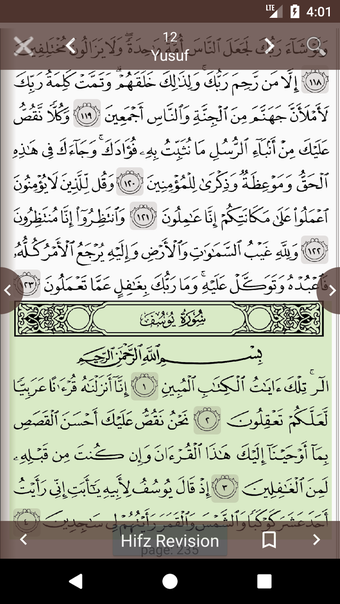 LTE 4:01
وَلَوْ شَآءَ رَبُّكَ لَجَعَلَ ٱلنَّاسَ أُمَّةً وَٰحِدَةً ۖ وَلَا يَزَالُونَ مُخْتَلِفِينَ
12
Yusuf
١١٨ إِلَّا مَن رَّحِمَ رَبُّكَ ۚ وَلِذَٰلِكَ خَلَقَهُمْ ۗ وَتَمَّتْ كَلِمَةُ رَبِّكَ
لَأَمْلَأَنَّ جَهَنَّمَ مِنَ ٱلْجِنَّةِ وَٱلنَّاسِ أَجْمَعِينَ ١١٩ وَكُلًّا نَّقُصُّ
عَلَيْكَ مِنْ أَنۢبَآءِ ٱلرُّسُلِ مَا نُثَبِّتُ بِهِۦ فُؤَادَكَ ۚ وَجَآءَكَ فِى هَٰذِهِ
ٱلْحَقُّ وَمَوْعِظَةٌ وَذِكْرَىٰ لِلْمُؤْمِنِينَ ١٢٠ وَقُل لِّلَّذِينَ لَا يُؤْمِنُونَ
ٱعْمَلُوا۟ عَلَىٰ مَكَانَتِكُمْ إِنَّا عَٰمِلُونَ ١٢١ وَٱنتَظِرُوٓا۟ إِنَّا مُنتَظِرُونَ
١٢٢ وَلِلَّهِ غَيْبُ ٱلسَّمَٰوَٰتِ وَٱلْأَرْضِ وَإِلَيْهِ يُرْجَعُ ٱلْأَمْرُ كُلُّهُۥ
فَٱعْبُدْهُ وَتَوَكَّلْ عَلَيْهِ ۚ وَمَا رَبُّكَ بِغَٰفِلٍ عَمَّا تَعْمَلُونَ ١٢٣
سُورَةُ يُوسُفَ
بِسْمِ ٱللَّهِ ٱلرَّحْمَٰنِ ٱلرَّحِيمِ
الٓر ۚ تِلْكَ ءَايَٰتُ ٱلْكِتَٰبِ ٱلْمُبِينِ ١ إِنَّآ أَنزَلْنَٰهُ قُرْءَٰنًا عَرَبِيًّا
لَّعَلَّكُمْ تَعْقِلُونَ ٢ نَحْنُ نَقُصُّ عَلَيْكَ أَحْسَنَ ٱلْقَصَصِ
بِمَآ أَوْحَيْنَآ إِلَيْكَ هَٰذَا ٱلْقُرْءَانَ وَإِن كُنتَ مِن قَبْلِهِۦ
لَمِنَ ٱلْغَٰفِلِينَ ٣ إِذْ قَالَ يُوسُفُ لِأَبِيهِ يَٰٓأَبَتِ إِنِّى رَأَيْتُ
أَحَدَ عَشَرَ كَوْكَبًا وَٱلشَّمْسَ وَٱلْقَمَرَ رَأَيْتُهُمْ لِى سَٰجِدِينَ ٤
Hifz Revision
page: 235